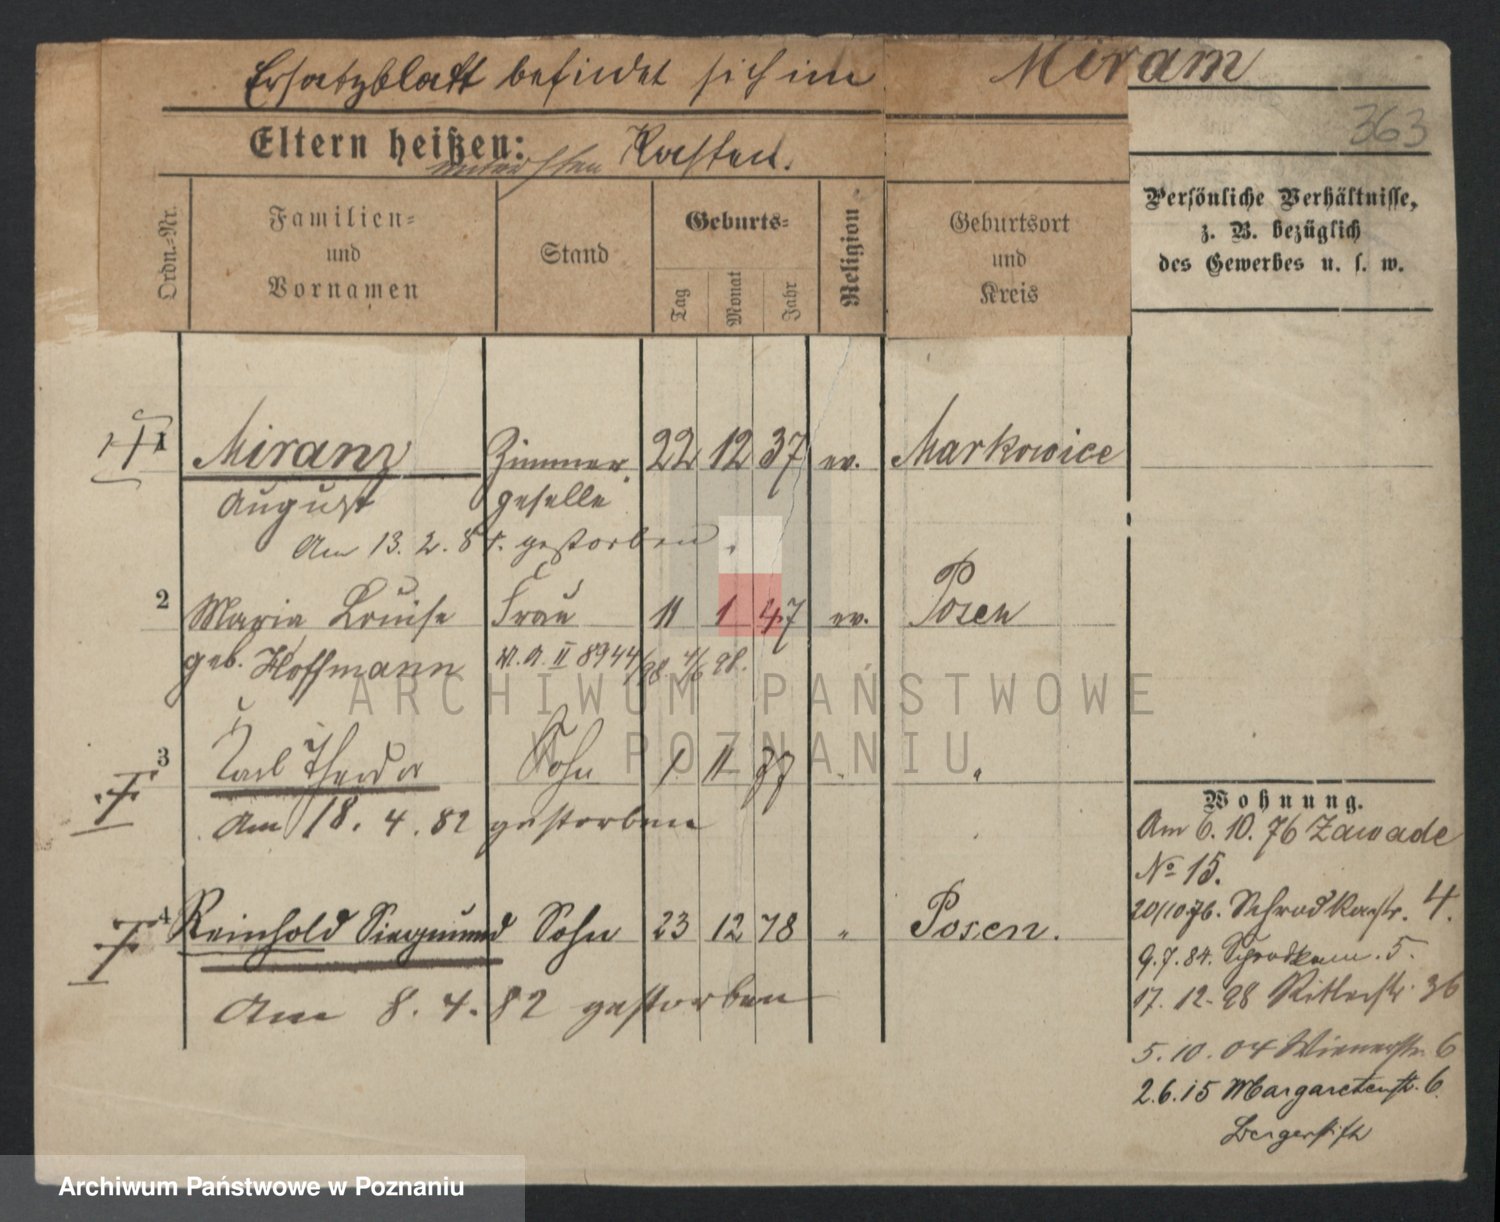 Ersatzblatt befindet sich im
Miram
363
Eltern heißen:
untersten Kasten.
Ordn.-Nr.
Familien-
und
Vornamen
Stand
Geburts-
Tag
Monat
Jahr
Religion
Geburtsort
und
Kreis
Persönliche Verhältnisse,
z. B. bezüglich
des Gewerbes u. s. w.
1 Miram Zimmer 22 12 37 ev. Markowice
August geselle
Am 13. 2. 8 gestorben.
2 Maria Louise Frau 11 1 47 ev. Posen
geb. Hoffmann II 8944/98 4/6 98.
3 Karl Theodor Sohn 1 11 77 " "
Am 18. 4. 82 gestorben
4 Reinhold Siegmund Sohn 23 12 78 " Posen.
Am 8. 4. 82 gestorben
Wohnung.
Am 6. 10. 76 Zawade
No 15.
20/10 76. Schrodkastr. 4.
9. 7. 84. Schrodkam. 5.
17. 12. 98 Ritterstr. 36
5. 10. 04 Wienerstr. 6
2. 6. 15 Margaretenstr. 6.
Bergerstift
ARCHIWUM PAŃSTWOWE
W POZNANIU
Archiwum Państwowe w Poznaniu